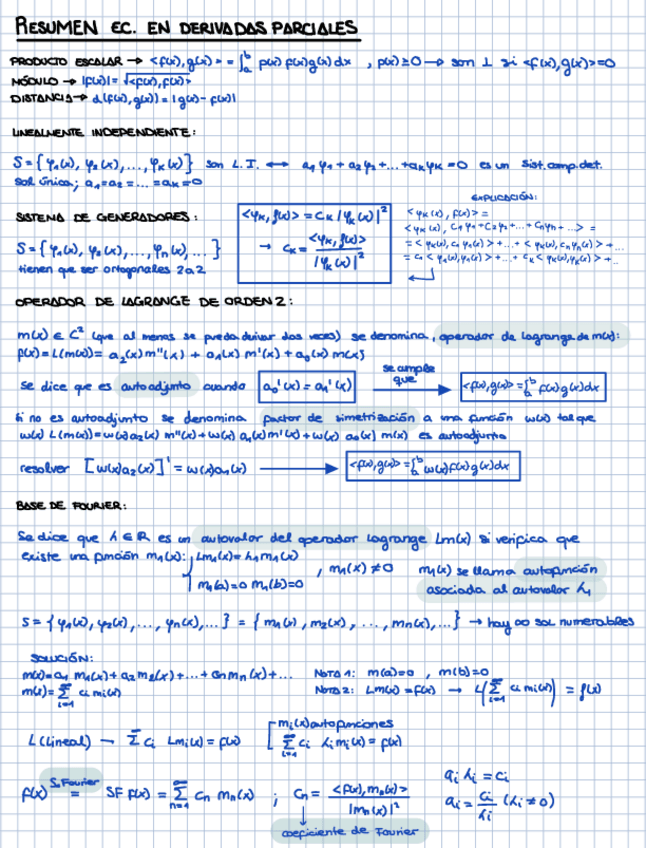 RESUMEN EC. EN DERIVADAS PARCIALES
PRODUCTO ESCALAR → <f(x),g(x)> = ∫ₐᵇ p(x) f(x)g(x) dx , p(x)≥0 → son ⊥ si <f(x),g(x)>=0
MÓDULO → |f(x)| = √<f(x),f(x)>
DISTANCIA → d(f(x),g(x)) = |g(x)-f(x)|
LINEALMENTE INDEPENDIENTE:
S = { φ₁(x), φ₂(x),..., φₖ(x)} son L.I. ↔ a₁φ₁ + a₂φ₂ +...+aₖφₖ = 0 es un sist.comp.det.
sol única; a₁=a₂=...=aₖ=0
SISTEMA DE GENERADORES:
S = { φ₁(x), φ₂(x),..., φₙ(x),... }
tienen que ser ortogonales 2a2
<φₖ, f(x)> = cₖ |φₖ(x)|²
→ cₖ = <φₖ, f(x)> / |φₖ(x)|²
EXPLICACIÓN:
<φₖ(x), f(x)> =
<φₖ(x), c₁φ₁+c₂φ₂+...+cₙφₙ+...> =
= <φₖ(x), c₁φ₁(x)> +...+ <φₖ(x), cₙφₙ(x)> +...
= c₁ <φ₁(x),φ₁(x)> +...+ cₖ <φₖ(x),φₖ(x)> +..
OPERADOR DE LAGRANGE DE ORDEN 2:
m(x) ∈ C² (que al menos se pueda derivar dos veces) se denomina, operador de lagrange de m(x):
f(x) = L(m(x)) = a₂(x) m''(x) + a₁(x) m'(x) + a₀(x) m(x)
se dice que es autoadjunto cuando a₀'(x) = a₁'(x) se cumple que → <f(x),g(x)> = ∫ₐᵇ f(x)g(x)dx
si no es autoadjunto se denomina factor de simetrización a una función w(x) tal que
w(x) L(m(x)) = w(x)a₂(x) m''(x) + w(x) a₁(x) m'(x) + w(x) a₀(x) m(x) es autoadjunto
resolver [w(x)a₂(x)]' = w(x)a₁(x) → <f(x),g(x)> = ∫ₐᵇ w(x)f(x)g(x)dx
BASE DE FOURIER:
Se dice que λ ∈ R es un autovalor del operador lagrange Lm(x) si verifica que
existe una función m₁(x): Lm₁(x) = λ₁m₁(x)
m₁(a)=0 m₁(b)=0 , m₁(x) ≠ 0
m₁(x) se llama autofunción
asociada al autovalor λ₁
S = { φ₁(x), φ₂(x),..., φₙ(x),... } = { m₁(x), m₂(x), ..., mₙ(x),...} → hay ∞ sol numerables
SOLUCIÓN:
m(x) = a₁ m₁(x) + a₂ m₂(x) +...+ aₙ mₙ(x) +...
m(x) = Σ aᵢ mᵢ(x)
i=1
NOTA 1: m(a)=0 , m(b)=0
NOTA 2: Lm(x) = f(x) → L(Σ aᵢ mᵢ(x)) = f(x)
i=1
L (lineal) → Σ cᵢ Lmᵢ(x) = f(x)
mᵢ(x) autofunciones
Σ cᵢ λᵢ mᵢ(x) = f(x)
i=1
f(x) S.Fourier = SF f(x) = Σ cₙ mₙ(x) ; cₙ = <f(x), mₙ(x)> / |mₙ(x)|²
n=1
coeficiente de Fourier
aᵢ λᵢ = cᵢ
aᵢ = cᵢ/λᵢ (λᵢ ≠ 0)